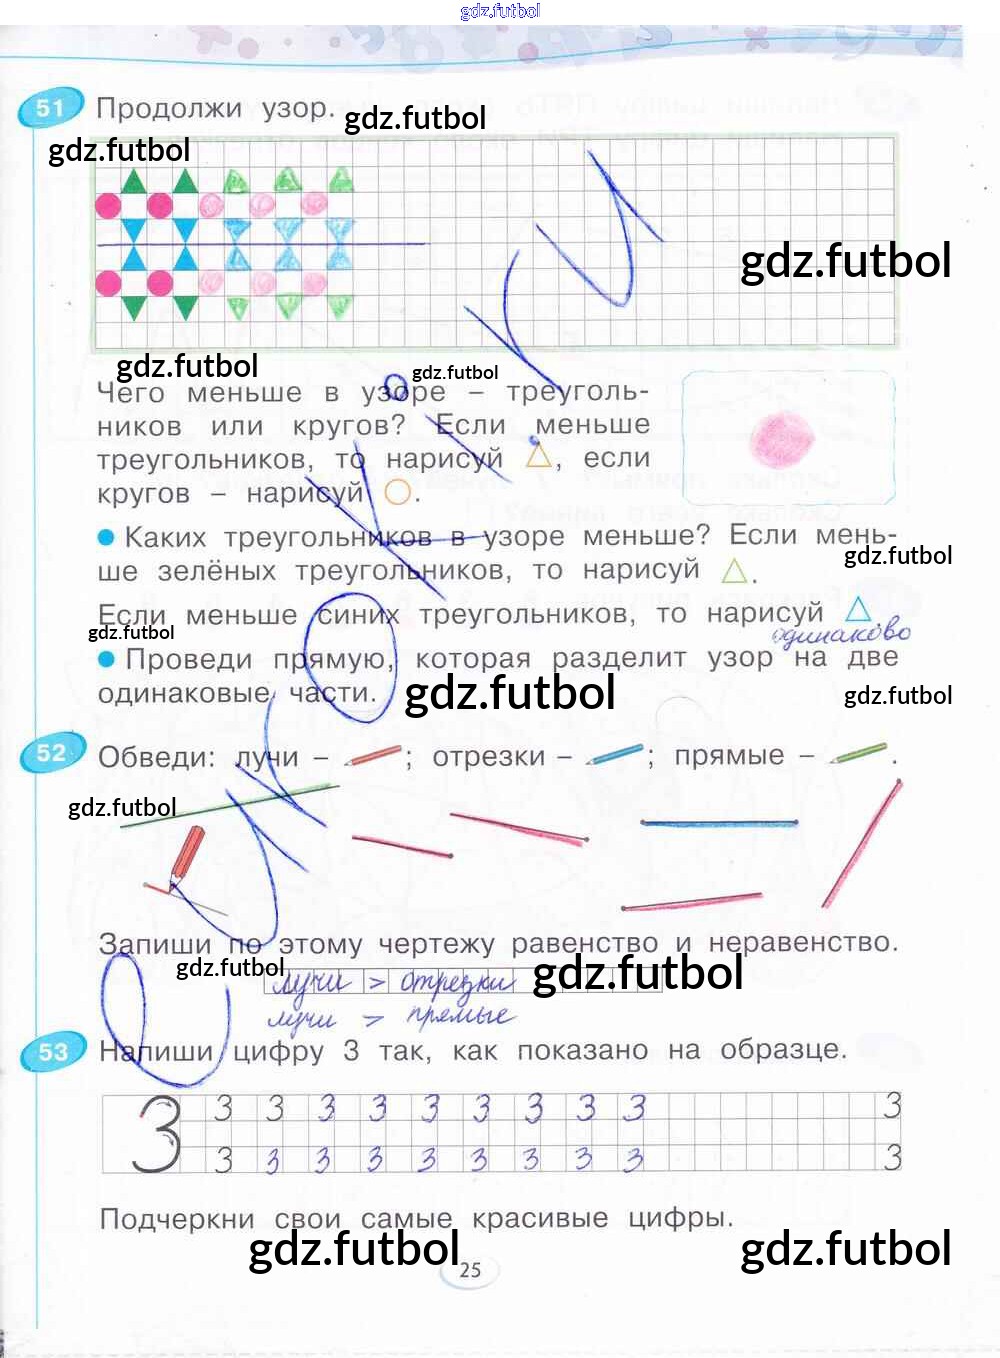 gdz.futbol
51 Продолжи узор.
gdz.futbol
gdz.futbol
gdz.futbol
gdz.futbol
gdz.futbol
Чего меньше в узоре – треуголь-
ников или кругов? Если меньше
треугольников, то нарисуй △, если
кругов – нарисуй ○.
• Каких треугольников в узоре меньше? Если мень-
gdz.futbol
ше зелёных треугольников, то нарисуй △.
Если меньше синих треугольников, то нарисуй △.
gdz.futbol
одинаково
• Проведи прямую, которая разделит узор на две
одинаковые части.
gdz.futbol
gdz.futbol
52 Обведи: лучи – ; отрезки – ; прямые – .
gdz.futbol
Запиши по этому чертежу равенство и неравенство.
gdz.futbol
gdz.futbol
лучи > отрезки
лучи > прямые
53 Напиши цифру 3 так, как показано на образце.
3 3 3 3 3 3 3 3 3 3 3
3 3 3 3 3 3 3 3 3 3
Подчеркни свои самые красивые цифры.
gdz.futbol
gdz.futbol
25